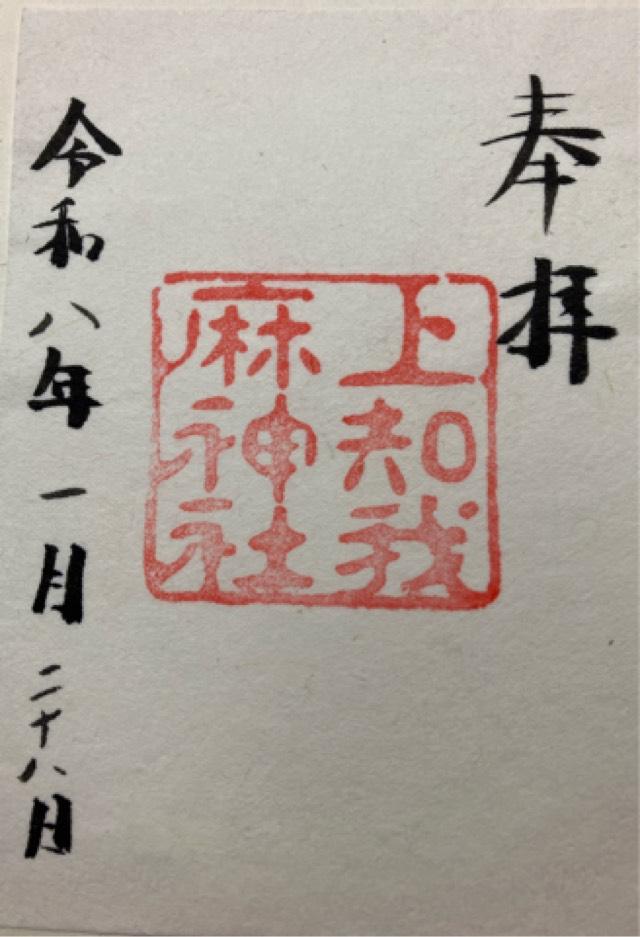 奉拝
上知我
麻神社
令和八年一月二十八月